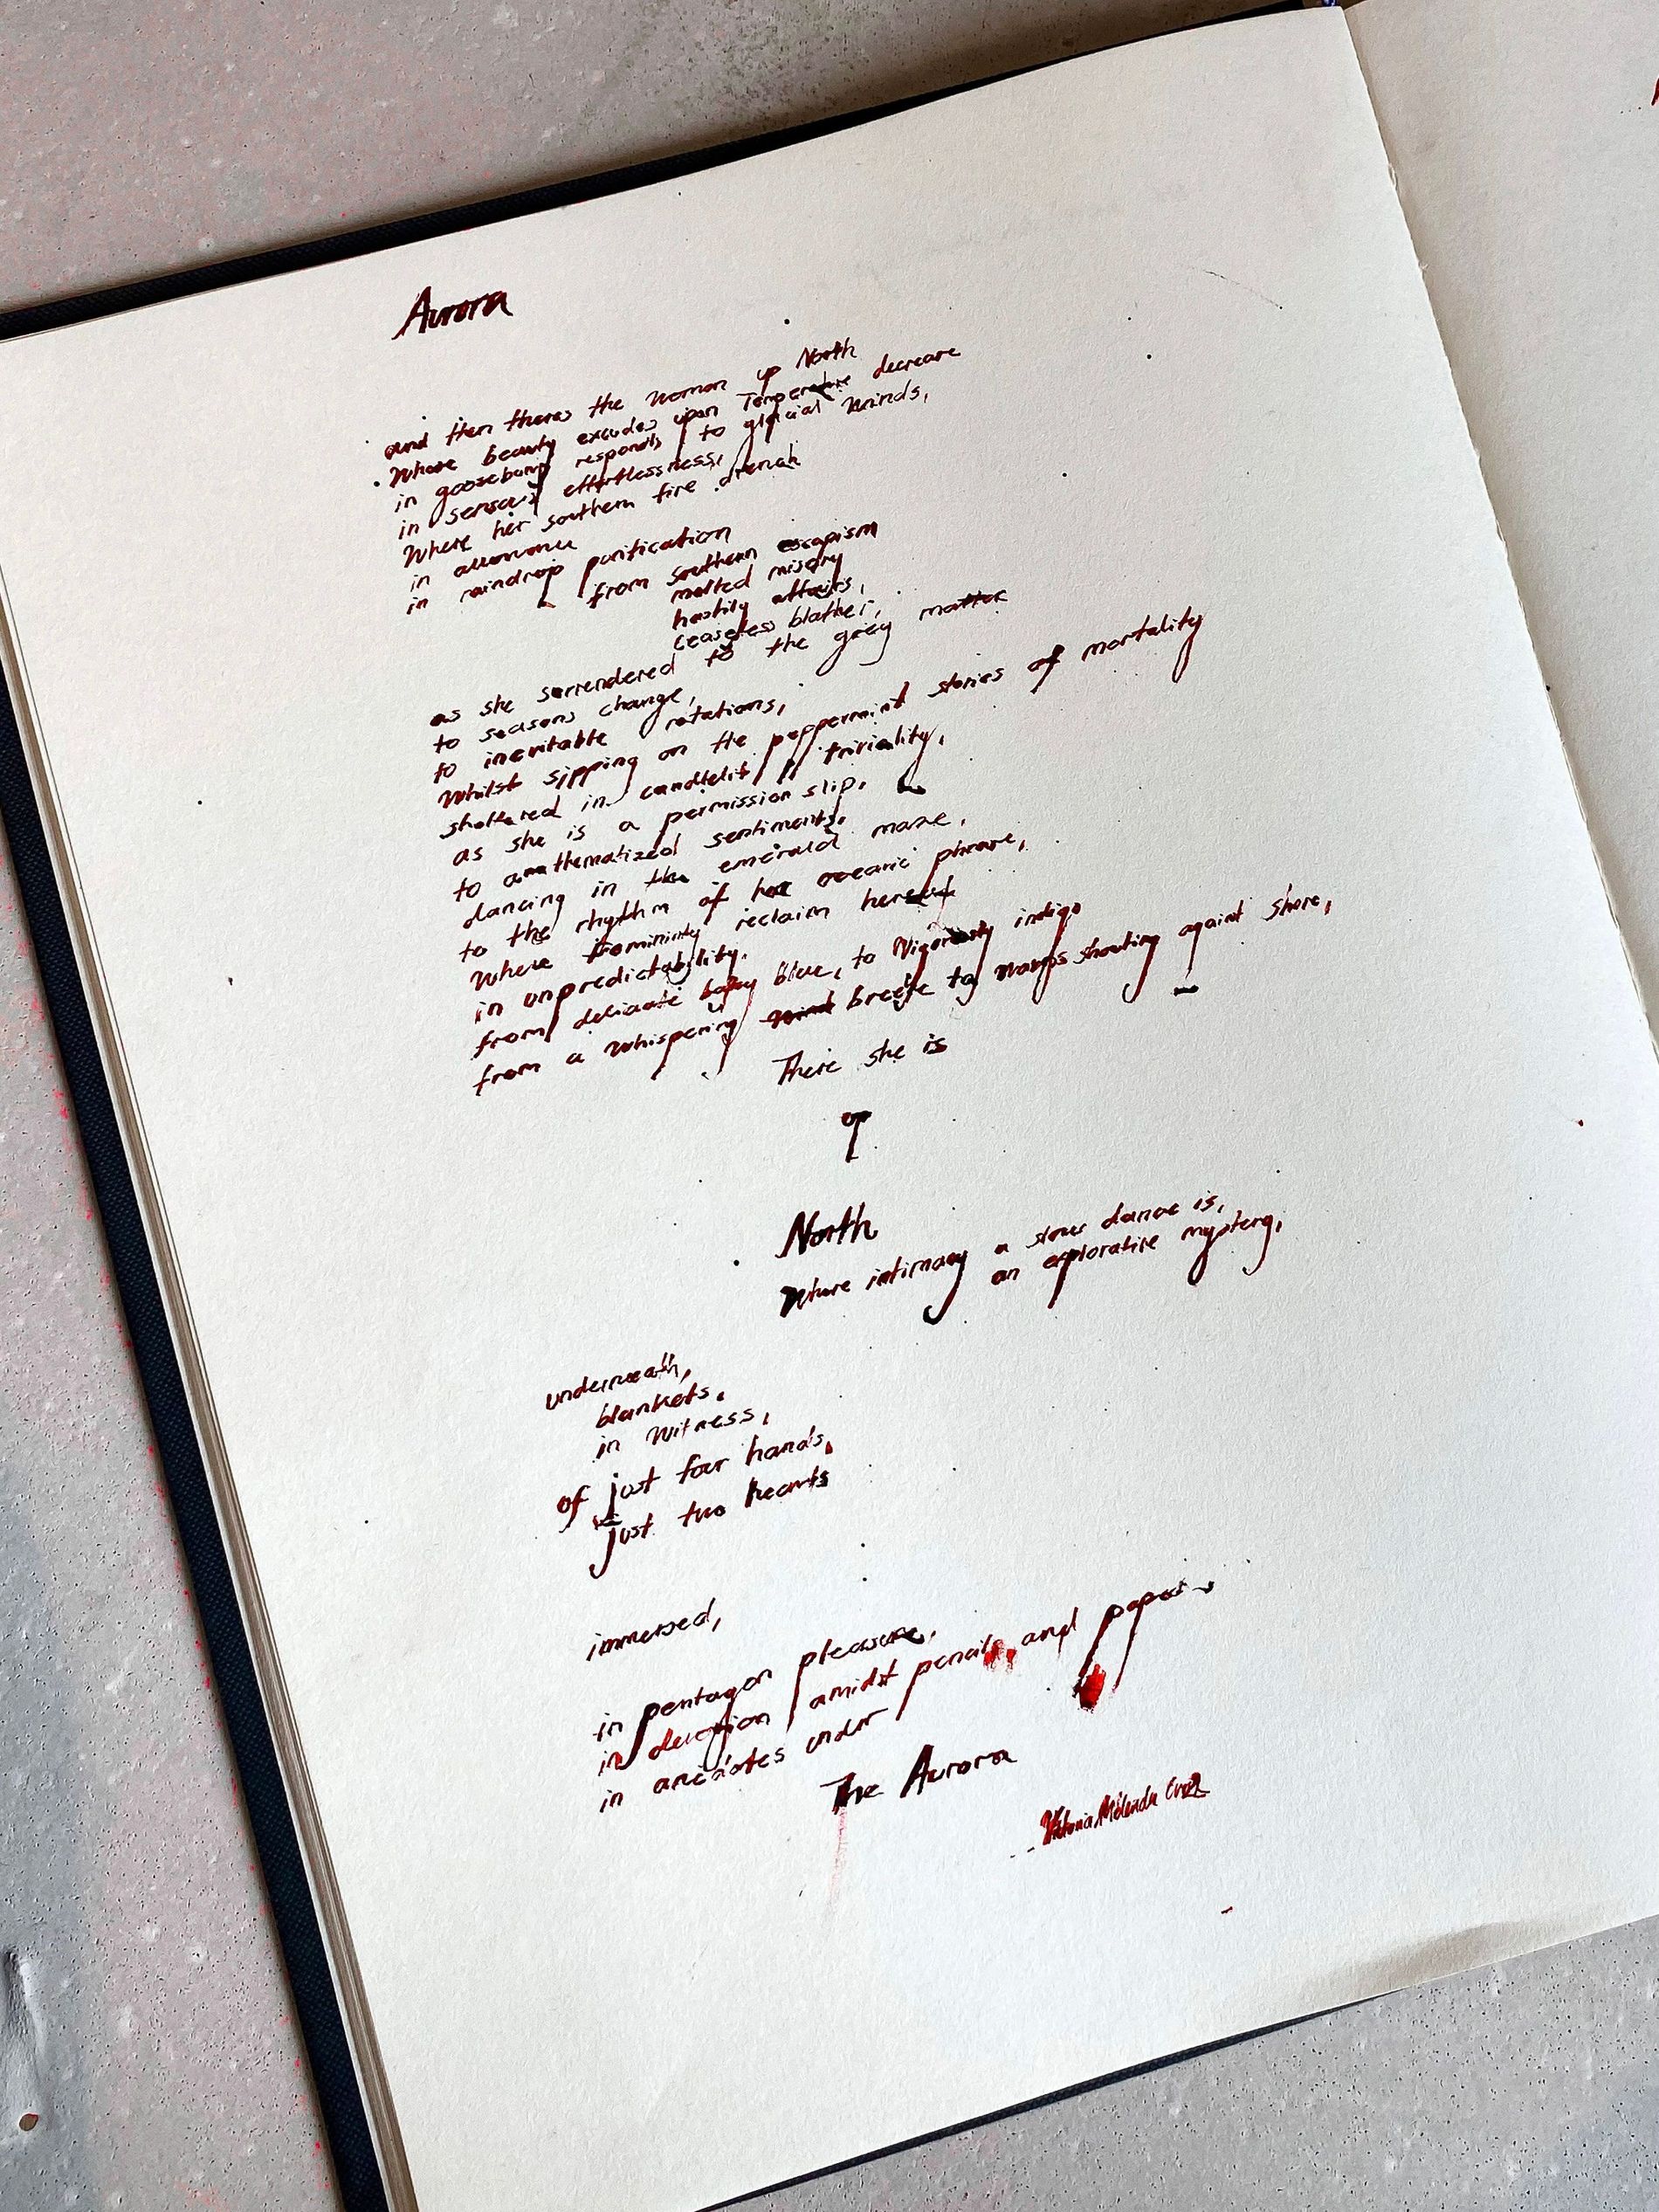 Aurora
and then theres the woman up North
Whose beauty excudes upon Temperature decrease
in goosebump responds to glacial winds,
in sensory effortlessness,
Where her southern fire drench
in
in raindrop purification
from southern escapism
melted misery
hastily affairs,
ceaseless blather,
as she surrendered to the grey matter
to seasons change,
to inevitable rotations,
Whilst sipping on the peppermint stories of mortality
sheltered in candlelit triviality,
as she is a permission slip,
to amathematized sentiments,
dancing in the emerald maze,
to the rhythm of her oceanic phrase,
Where femininity reclaim herself
in unpredictability.
from delicate baby blue, to Vigorously indigo
from a whispering wind breeze to shouting against shore,
There she is
up
North
Where intimacy a slow dance is,
an explorative mystery,
underneath,
blankets,
in witness,
of just four hands,
just two hearts
immersed,
in pentagon pleasure,
in devotion amidst pencils, and paper
in anecdotes under
The Aurora